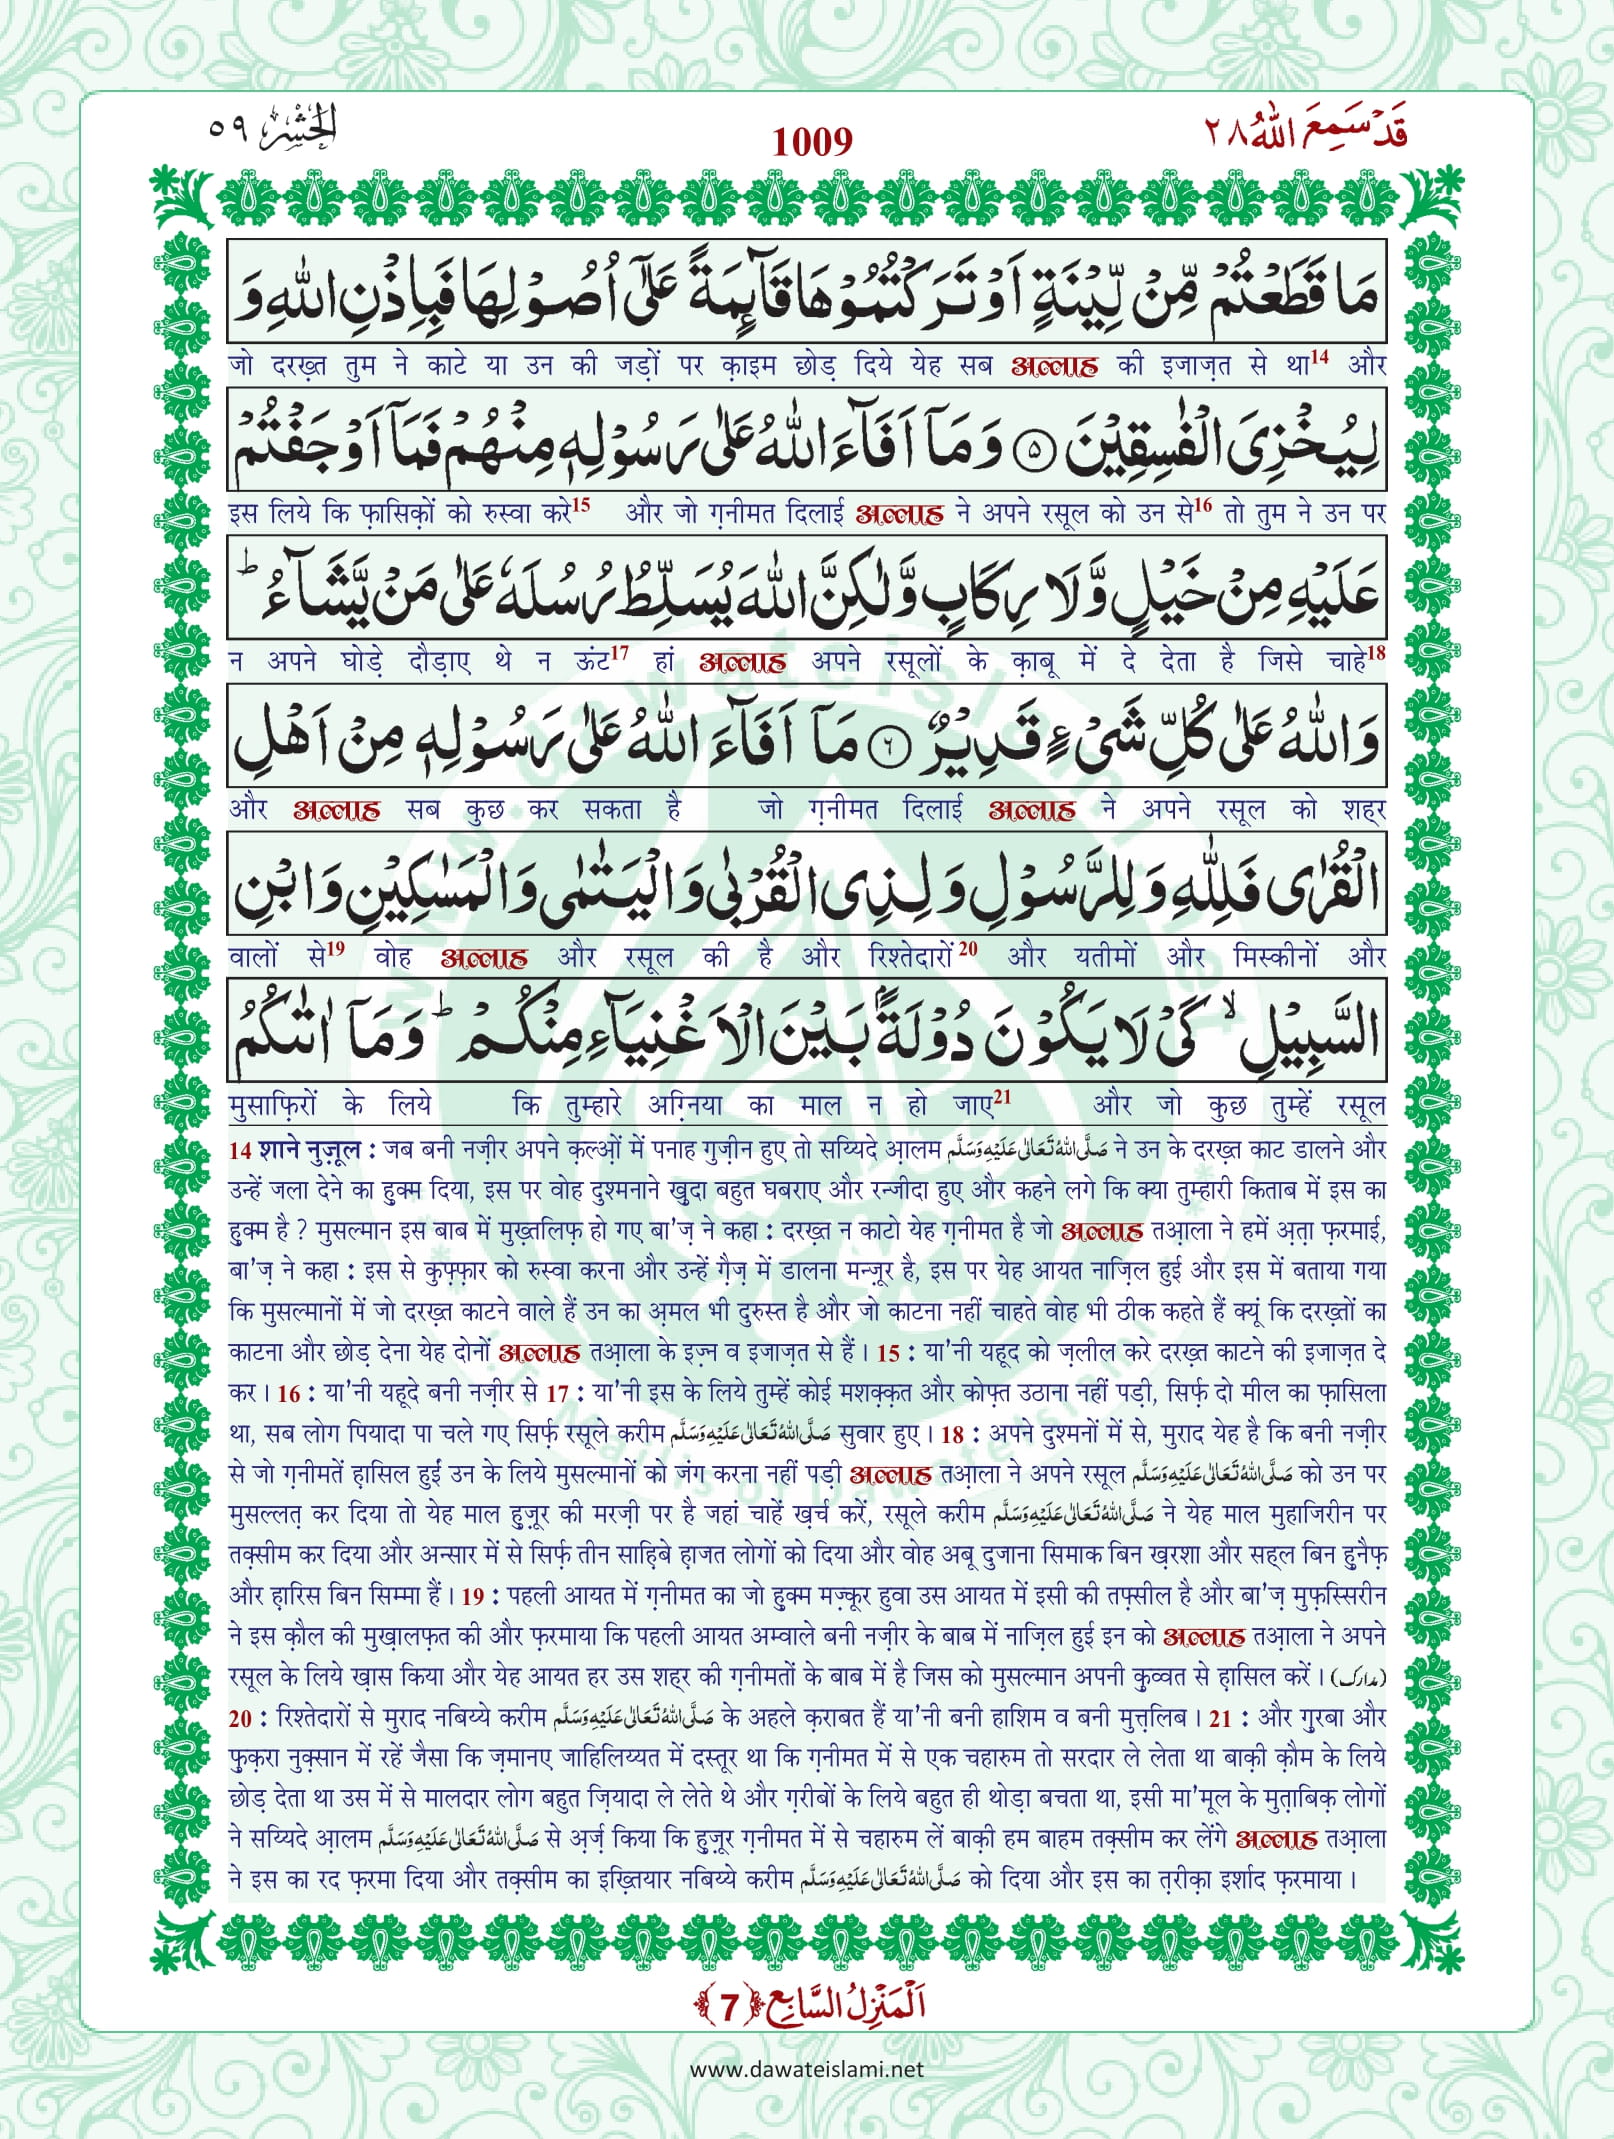 قَدْ سَمِعَ اللّٰهُ ٢٨
1009
الْحَشْر ٥٩
مَا قَطَعْتُمْ مِّنْ لِّیْنَةٍ اَوْ تَرَكْتُمُوْهَا قَآىٕمَةً عَلٰۤى اُصُوْلِهَا فَبِاِذْنِ اللّٰهِ وَ
जो दरख़्त तुम ने काटे या उन की जड़ों पर क़ाइम छोड़ दिये येह सब अल्लाह की इजाज़त से था14 और
لِیُخْزِیَ الْفٰسِقِیْنَ ۝۵ وَ مَاۤ اَفَآءَ اللّٰهُ عَلٰى رَسُوْلِهٖ مِنْهُمْ فَمَاۤ اَوْجَفْتُمْ
इस लिये कि फ़ासिक़ों को रुस्वा करे15 और जो ग़नीमत दिलाई अल्लाह ने अपने रसूल को उन से16 तो तुम ने उन पर
عَلَیْهِ مِنْ خَیْلٍ وَّ لَا رِكَابٍ وَّ لٰكِنَّ اللّٰهَ یُسَلِّطُ رُسُلَهٗ عَلٰى مَنْ یَّشَآءُ ؕ
न अपने घोड़े दौड़ाए थे न ऊंट17 हां अल्लाह अपने रसूलों के क़ाबू में दे देता है जिसे चाहे18
وَ اللّٰهُ عَلٰى كُلِّ شَیْءٍ قَدِیْرٌ ۝۶ مَاۤ اَفَآءَ اللّٰهُ عَلٰى رَسُوْلِهٖ مِنْ اَهْلِ
और अल्लाह सब कुछ कर सकता है जो ग़नीमत दिलाई अल्लाह ने अपने रसूल को शहर
الْقُرٰى فَلِلّٰهِ وَ لِلرَّسُوْلِ وَ لِذِی الْقُرْبٰى وَ الْیَتٰمٰى وَ الْمَسٰكِیْنِ وَ ابْنِ
वालों से19 वोह अल्लाह और रसूल की है और रिश्तेदारों20 और यतीमों और मिस्कीनों और
السَّبِیْلِ ۙ كَیْ لَا یَكُوْنَ دُوْلَةًۢ بَیْنَ الْاَغْنِیَآءِ مِنْكُمْ ؕ وَ مَاۤ اٰتٰىكُمُ
मुसाफ़िरों के लिये कि तुम्हारे अग़्निया का माल न हो जाए21 और जो कुछ तुम्हें रसूल
14 शाने नुज़ूल : जब बनी नज़ीर अपने क़ल्ओ़ं में पनाह गुज़ीन हुए तो सय्यिदे आ़लम صَلَّى اللّٰهُ تَعَالٰى عَلَيْهِ وَسَلَّم ने उन के दरख़्त काट डालने और
उन्हें जला देने का हुक्म दिया, इस पर वोह दुश्मनाने ख़ुदा बहुत घबराए और रन्जीदा हुए और कहने लगे कि क्या तुम्हारी किताब में इस का
हुक्म है ? मुसल्मान इस बाब में मुख़्तलिफ़ हो गए बा'ज़ ने कहा : दरख़्त न काटो येह ग़नीमत है जो अल्लाह तआ़ला ने हमें अ़त़ा फ़रमाई,
बा'ज़ ने कहा : इस से कुफ़्फ़ार को रुस्वा करना और उन्हें ग़ैज़ में डालना मन्ज़ूर है, इस पर येह आयत नाज़िल हुई और इस में बताया गया
कि मुसल्मानों में जो दरख़्त काटने वाले हैं उन का अ़मल भी दुरुस्त है और जो काटना नहीं चाहते वोह भी ठीक कहते हैं क्यूं कि दरख़्तों का
काटना और छोड़ देना येह दोनों अल्लाह तआ़ला के इज़्न व इजाज़त से हैं । 15 : या'नी यहूद को ज़लील करे दरख़्त काटने की इजाज़त दे
कर । 16 : या'नी यहूदे बनी नज़ीर से 17 : या'नी इस के लिये तुम्हें कोई मशक़्क़त और कोफ़्त उठाना नहीं पड़ी, सिर्फ़ दो मील का फ़ासिला
था, सब लोग पियादा पा चले गए सिर्फ़ रसूले करीम صَلَّى اللّٰهُ تَعَالٰى عَلَيْهِ وَسَلَّم सुवार हुए । 18 : अपने दुश्मनों में से, मुराद येह है कि बनी नज़ीर
से जो ग़नीमतें ह़ासिल हुईं उन के लिये मुसल्मानों को जंग करना नहीं पड़ी अल्लाह तआ़ला ने अपने रसूल صَلَّى اللّٰهُ تَعَالٰى عَلَيْهِ وَسَلَّم को उन पर
मुसल्लत़ कर दिया तो येह माल हुज़ूर की मरज़ी पर है जहां चाहें ख़र्च करें, रसूले करीम صَلَّى اللّٰهُ تَعَالٰى عَلَيْهِ وَسَلَّم ने येह माल मुहाजिरीन पर
तक़्सीम कर दिया और अन्सार में से सिर्फ़ तीन साह़िबे ह़ाजत लोगों को दिया और वोह अबू दुजाना सिमाक बिन ख़रशा और सह्ल बिन हुनैफ़
और ह़ारिस बिन सिम्मा हैं । 19 : पहली आयत में ग़नीमत का जो हुक्म मज़्कूर हुवा उस आयत में इसी की तफ़्सील है और बा'ज़ मुफ़स्सिरीन
ने इस क़ौल की मुख़ालफ़त की और फ़रमाया कि पहली आयत अम्वाले बनी नज़ीर के बाब में नाज़िल हुई इन को अल्लाह तआ़ला ने अपने
रसूल के लिये ख़ास किया और येह आयत हर उस शहर की ग़नीमतों के बाब में है जिस को मुसल्मान अपनी कुव्वत से ह़ासिल करें । (مدارک)
20 : रिश्तेदारों से मुराद नबिय्ये करीम صَلَّى اللّٰهُ تَعَالٰى عَلَيْهِ وَسَلَّم के अहले क़राबत हैं या'नी बनी हाशिम व बनी मुत्तलिब । 21 : और ग़ुरबा और
फ़ुक़रा नुक़्सान में रहें जैसा कि ज़मानए जाहिलिय्यत में दस्तूर था कि ग़नीमत में से एक चहारुम तो सरदार ले लेता था बाक़ी क़ौम के लिये
छोड़ देता था उस में से मालदार लोग बहुत ज़ियादा ले लेते थे और ग़रीबों के लिये बहुत ही थोड़ा बचता था, इसी मा'मूल के मुत़ाबिक़ लोगों
ने सय्यिदे आ़लम صَلَّى اللّٰهُ تَعَالٰى عَلَيْهِ وَسَلَّم से अ़र्ज़ किया कि हुज़ूर ग़नीमत में से चहारुम लें बाक़ी हम बाहम तक़्सीम कर लेंगे अल्लाह तआ़ला
ने इस का रद फ़रमा दिया और तक़्सीम का इख़्तियार नबिय्ये करीम صَلَّى اللّٰهُ تَعَالٰى عَلَيْهِ وَسَلَّم को दिया और इस का त़रीक़ा इर्शाद फ़रमाया ।
اَلْمَنْزِلُ السَّابِع ﴿7﴾
www.dawateislami.net